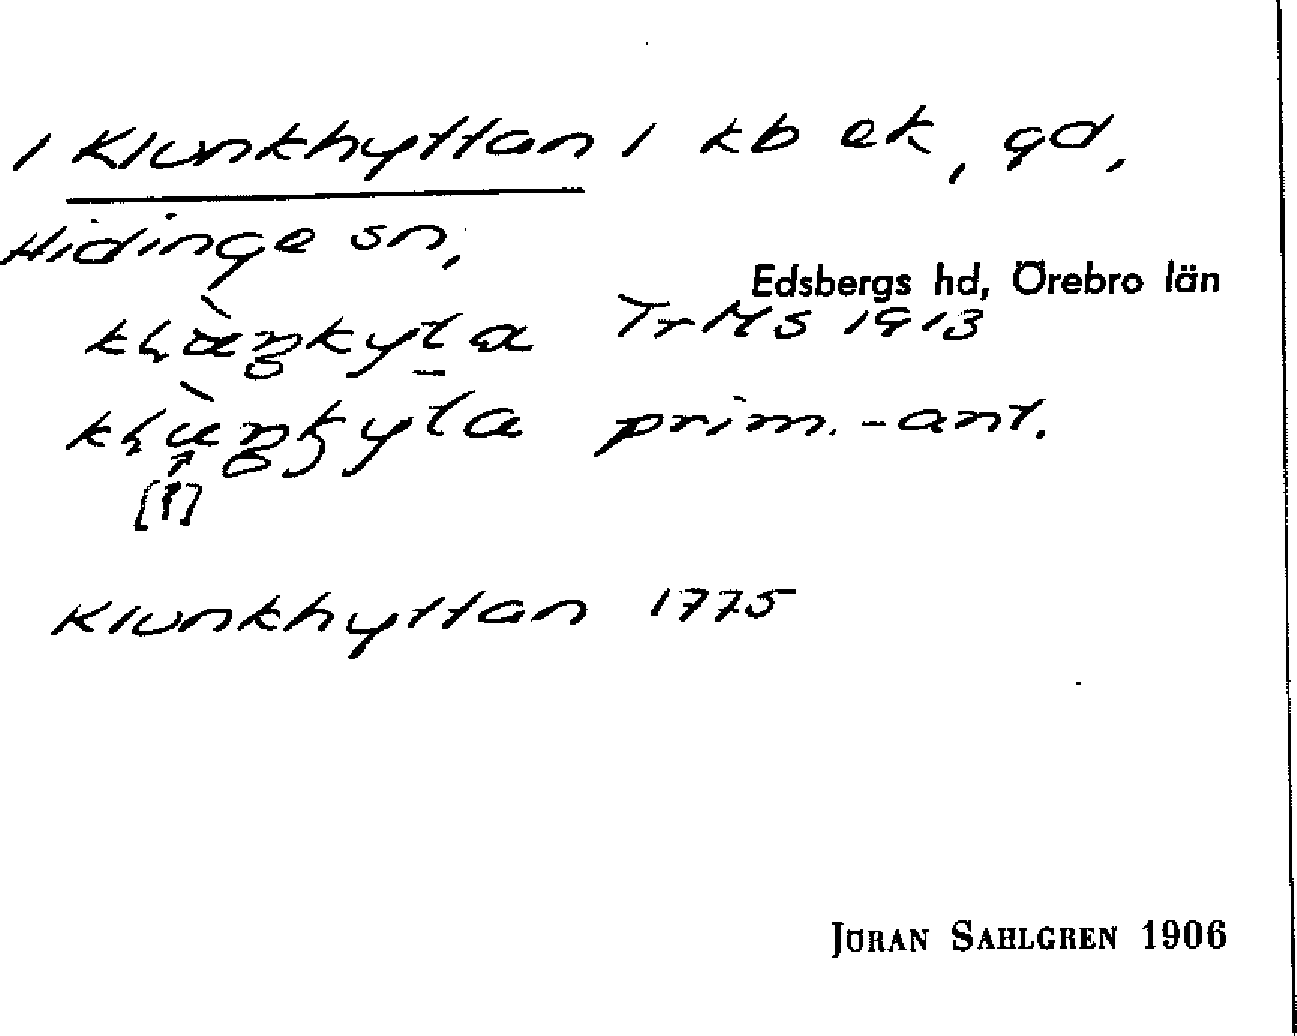 / Klunkhyttan / kb ek, gd,
Hidinge sn,
Edsbergs hd, Örebro län
TrHS 1913
prim.-ant.
[?]
Klunkhyttan 1775
JÖRAN SAHLGREN 1906